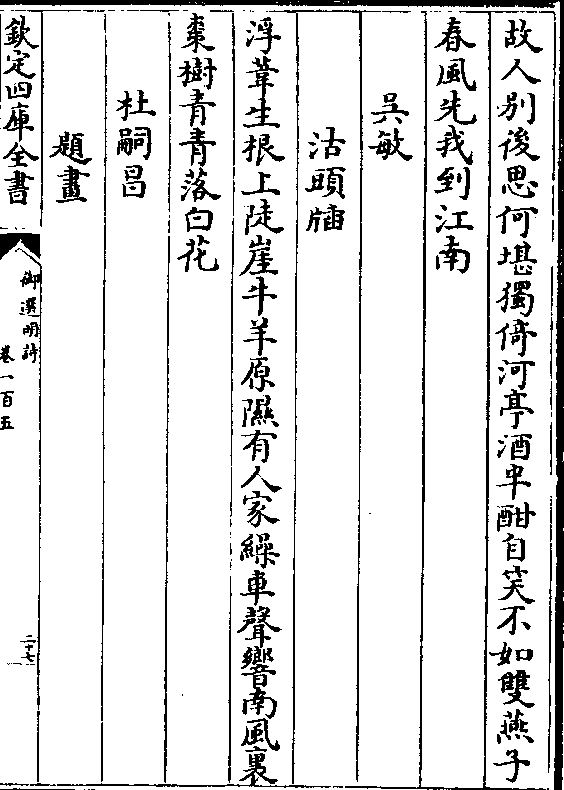 故人别後思何堪獨倚河亭酒半酣自笑不如雙燕子
春風先我到江南
吳敏
沽頭牐
浮葦生根上陡崖牛羊原隰有人家繰車聲響南風裏
棗樹青青落白花
杜嗣昌
題畫
欽定四庫全書
御選明詩
卷一百五
二十七